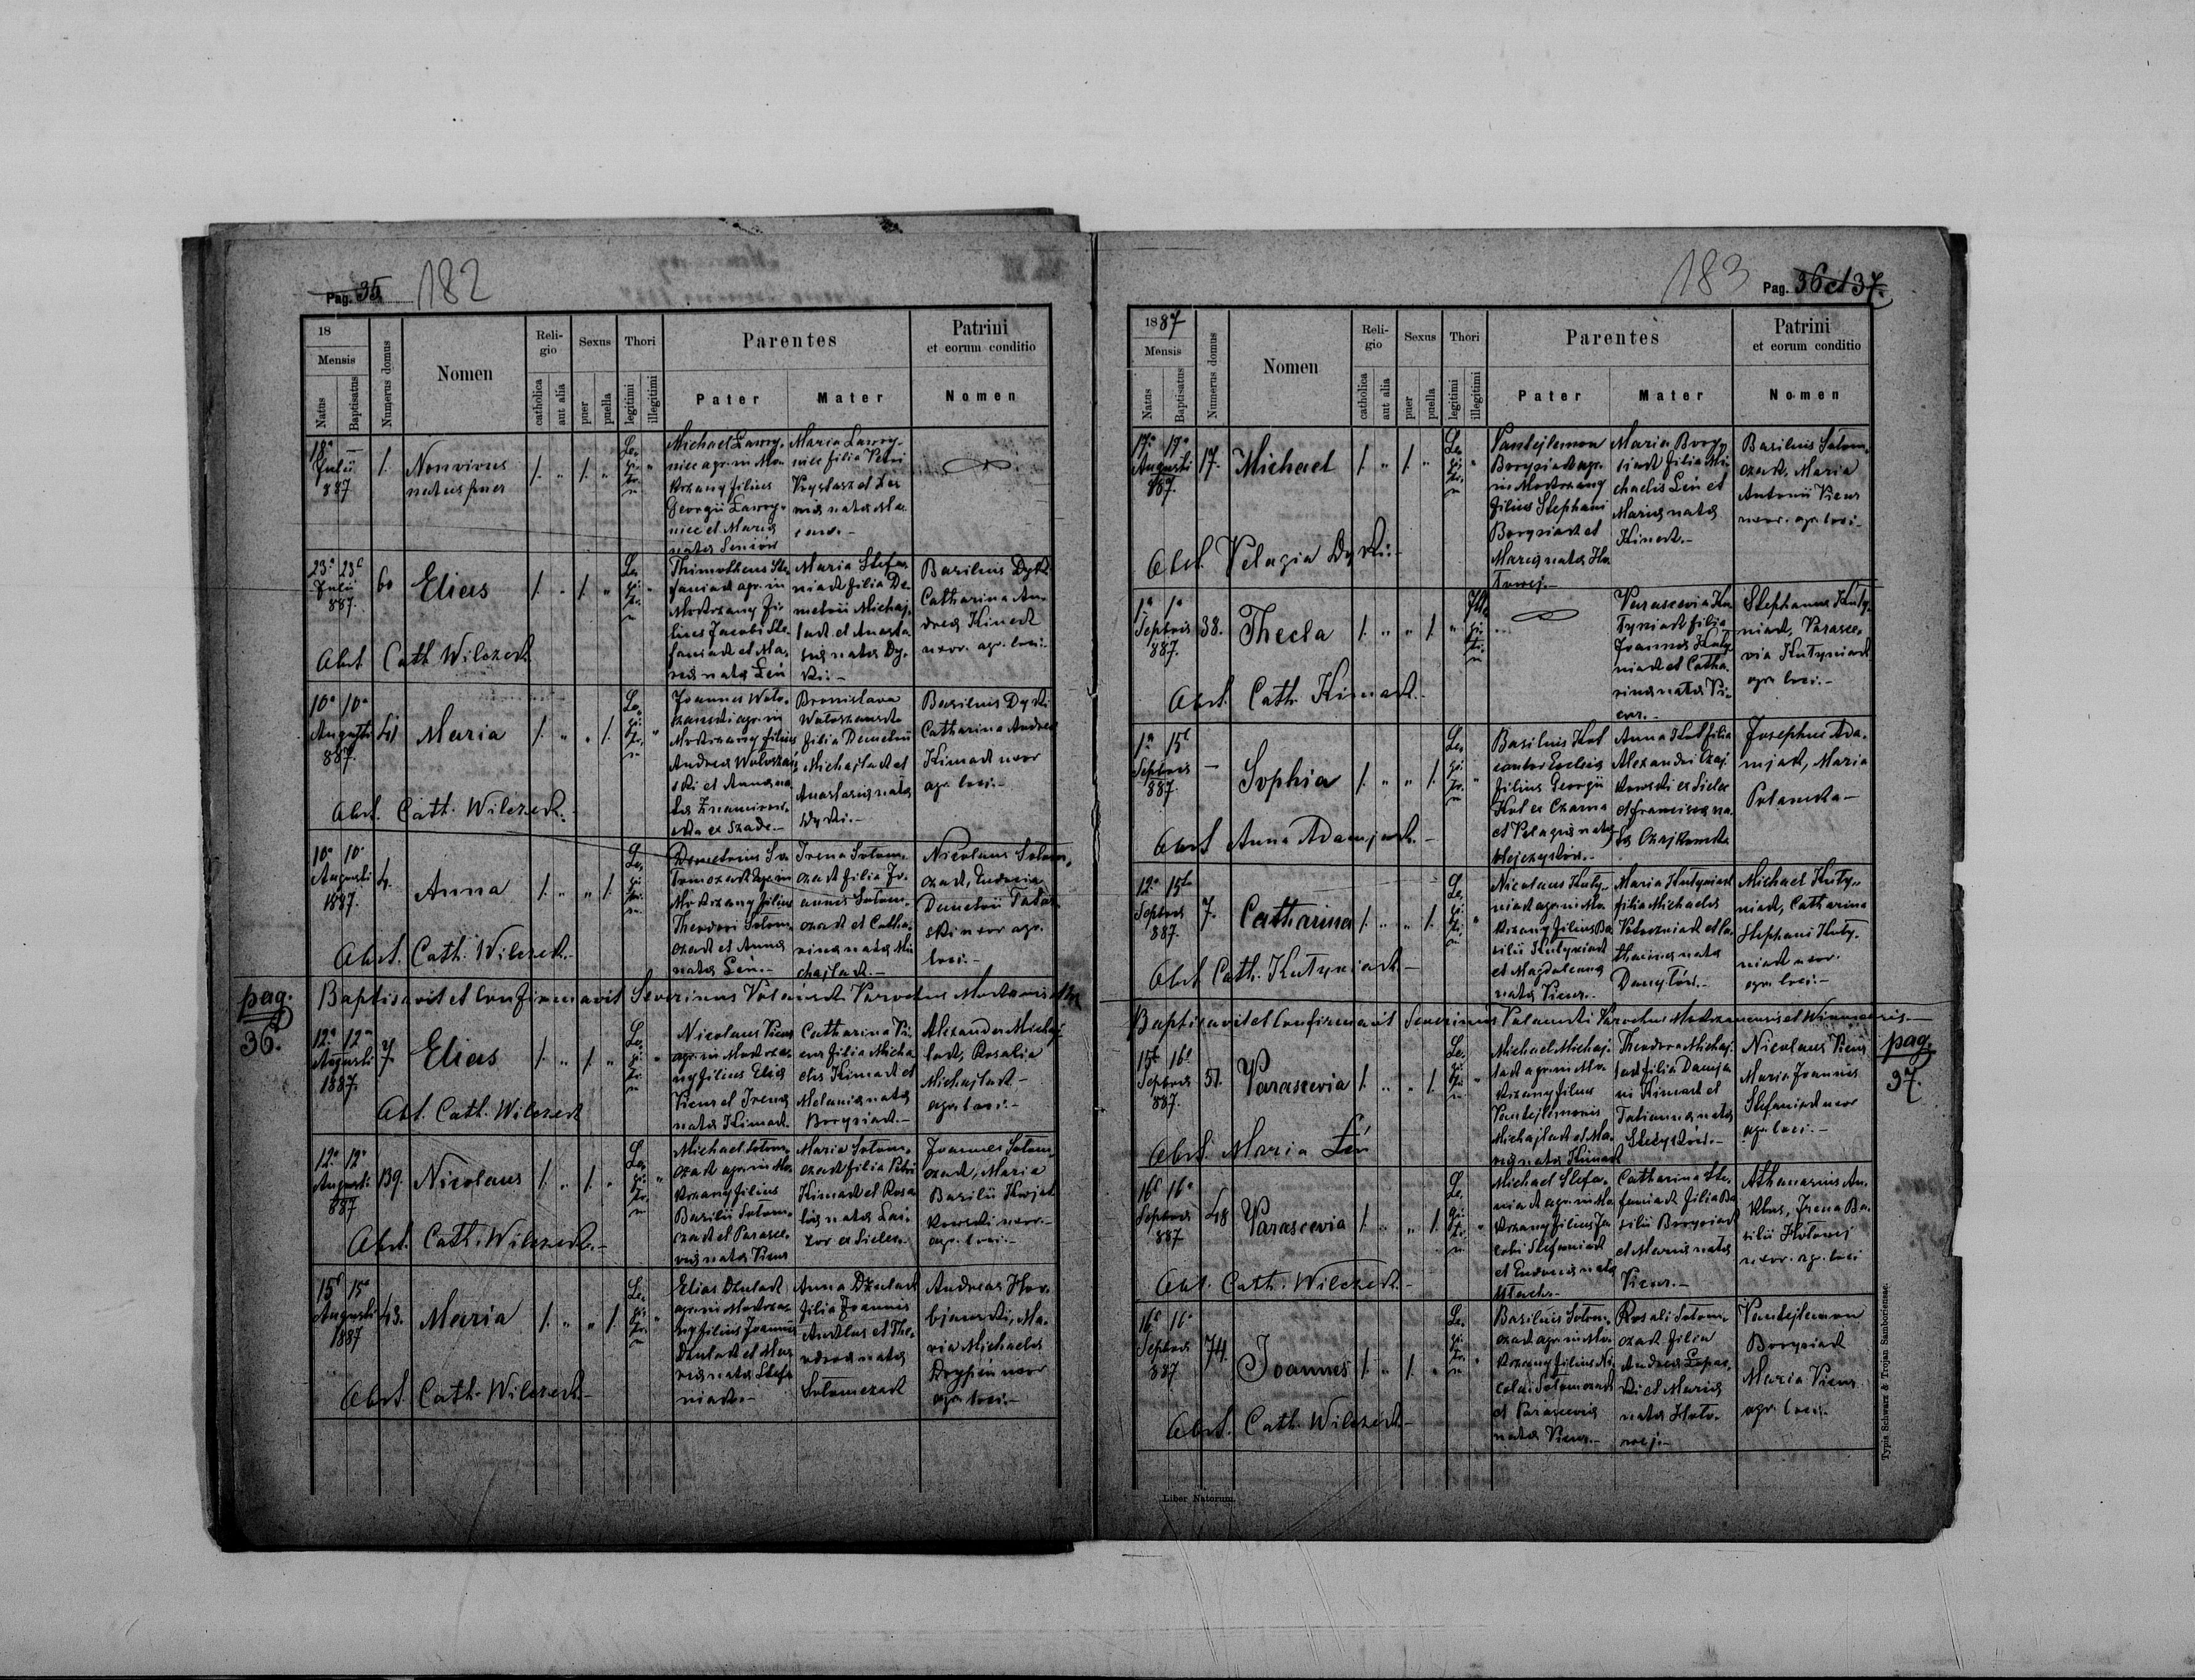 Pag. 35 182
18
Mensis
Natus
Baptisatus
Numerus domus
Nomen
Reli-
gio
catholica
aut alia
Sexus
puer
puella
Thori
legitimi
illegitimi
Parentes
Pater
Mater
Patrini
et eorum conditio
Nomen
18a
Julii
887
1.
Nonvivus
natus puer
Le,
gi
ti,
mi
Michael Lawry,
nice agr. in Mo,
krzany filius
Georgii Lawry,
niec et Maria
nata
Maria Lawry,
niec filia Petri
nia nata
23a 23a
Julii
887.
60
Elias
Le,
gi
ti,
mi
Thimotheus Ste,
faniak agr. in
Mokrzany fi,
lius Jacobi Ste,
faniak et Ma,
ria nata Leń
Maria Stefa,
niak filia De,
metrii Michaj,
lak et Anasta,
sia nata Dy,
ki.-
Basilius Dyki
Catharina An,
drea Kimak
uxor. agr. loci.-
Abst. Cath. Wilczek
10a 10a
Augusti
887.
41
Maria
Le,
gi
ti,
mi
Joannes Woło,
szanski agr. in
Mokrzany filius
Andrea Wołoszań,
ski et Anna na,
ta
ex Szade.-
Bronislava
Wołoszanska
filia Demetrii
Michajlak et
Anastasia nata
Dyki.-
Basilius Dyki
Catharina Andrea
Kimak uxor
agr. loci.-
Abst. Cath. Wilczek.-
10a 10a
Augusti
1887.
4.
Anna
Le,
gi
ti,
mi
Demetrius So,
lomczak agr. in
Mokrzany filius
Theodori Solom,
czak et Anna
nata Leń.-
Irena Solom,
czak filia Jo,
annis Solom,
czak et Catha,
rina nata Mi
chajlak.-
Nicolaus Solom,
czak, Eudocia
Demetrii
ski uxor agr.
loci.-
Abst. Cath. Wilczek.-
pag.
36.
Baptisavit et Confirmavit Severinus Polański Parochus
12a 12a
Augusti
1887.
7.
Elias
Le,
gi
ti,
mi
Nicolaus Vicus
agr. in Mokrza,
ny filius Elia
Vicus et Irena
nata Kimak.
Catharina Vi,
cus filia Micha
elis Kimak et
Melania nata
Borysiak.-
Alexander Michaj,
lak, Rosalia
Michajlak-
agr. loci.-
Abst. Cath. Wilczek
12a 12a
Augusti
887
139.
Nicolaus
Le,
gi
ti,
mi
Michael Solom,
czak agr. in Mo,
krzany filius
Basilii Solom,
czak et Parasce,
via nata Vicus
Maria Solom,
czak filia Petri
Kimak et Rosa
lia nata
ex Sielec.-
Joannes Solom,
czak, Maria
Basilii
uxor.-
agr. loci.-
Abst. Cath. Wilczek.-
15a 15a
Augusti
1887
43.
Maria
Le,
gi
ti,
mi
Elias Dżulak
agr. in Mokrza,
ny filius Joannis
Dżulak et Ma
ria nata Stefa
niak.-
Anna Dżulak
filia Joannis
et The,
odora nata
Solomczak
Andreas
Ma,
ria Michaelis
uxor
agr. loci.-
Abst. Cath. Wilczek-
183 Pag. 36 et 37.
1887
Mensis
Natus
Baptisatus
Numerus domus
Nomen
Reli-
gio
catholica
aut alia
Sexus
puer
puella
Thori
legitimi
illegitimi
Parentes
Pater
Mater
Patrini
et eorum conditio
Nomen
17a 17a
Augusti
887.
17.
Michael
Le,
gi
ti,
mi
Pantejlemon
Borysiak agr.
in Mokrzany
filius Stephani
Borysiak et
Maria nata Ho,
lowej.-
Maria Bory,
siak filia Mi,
chaelis Leń et
Maria nata
Kimak.-
Basilius Solom,
czak, Maria
Antonii Vicus
uxor. agr. loci.-
Abst. Pelagia Dyki.-
1a 1a
Septbris
887.
38.
Thecla
Ille,
gi
ti,
mi
Parascevia Ku
tyniak filia
Joannis Kuty,
niak et Catha,
rina nata Vi,
cus.-
Stephanus Kuty,
niak, Parasce,
via Kutyniak
agr. loci.-
Abst. Cath. Kimak.-
1a 15a
Septbris
887.
-
Sophia
Le,
gi
ti,
mi
Basilius Kul
cantor Ecclesia
filius Georgii
Kul ex Czarna
et Pelagia nata
Anna Kul filia
Alexandri Czaj,
kowski ex Sielec
et Francisca na,
ta Czajkowska
Josephus Ada,
mjak, Maria
Polanska-
Abst. Anna Adamjak.-
12a 15a
Septbris
887.
7.
Catharina
Le,
gi
ti,
mi
Nicolaus Kuty,
niak agr. in Mo,
krzany filius Ba,
silii Kutyniak
et Magdalena
nata Vicus.-
Maria Kutyniak
filia Michaelis
et Ca,
tharina nata
Michael Kuty,
niak, Catharina
Stephani Kuty,
niak uxor.
agr. loci.-
Abst. Cath. Kutyniak-
Baptisavit et Confirmavit Severinus Polanski Parochus Mokrzanensis et
pag.
37.
15a 16a
Septbris
887.
51.
Parascevia
Le,
gi
ti,
mi
Michael Michaj,
lak agr. in Mo,
krzany filius
Pantejlemonis
Michajlak et Ma,
ria nata Kimak
Theodora Michaj,
lak filia Damja
ni Kimak et
Tatianna nata
Nicolaus Vicus
Maria Joannis
Stefaniak uxor
agr. loci.-
Abst. Maria Leń
16a 16a
Septbris
887
48
Parascevia
Le,
gi
ti,
mi
Michael Stefa,
niak agr. in Mo
krzany filius Ja
cobi Stefaniak
et Eudocia nata
Catharina Ste,
faniak filia Ba
silii Borysiak
et Maria nata
Vicus.-
Athanasius
Irena Ba,
silii Hołowej
uxor. agr. loci
Abst. Cath. Wilczek-
16a 16a
Septbris
887
74.
Joannes
Le,
gi
ti,
mi
Basilius Solom,
czak agr. in Mo,
krzany filius Ni,
colai Solomczak
et Parascevia
nata Vicus.-
Rosali Solom,
czak filia
Andrea
et Maria
nata Hoło,
wej.-
Pantejlemon
Borysiak
Maria Vicus
agr. loci.-
Abst. Cath. Wilczek-
Liber Natorum.
Typis Schwarz & Trojan Samboriensae.